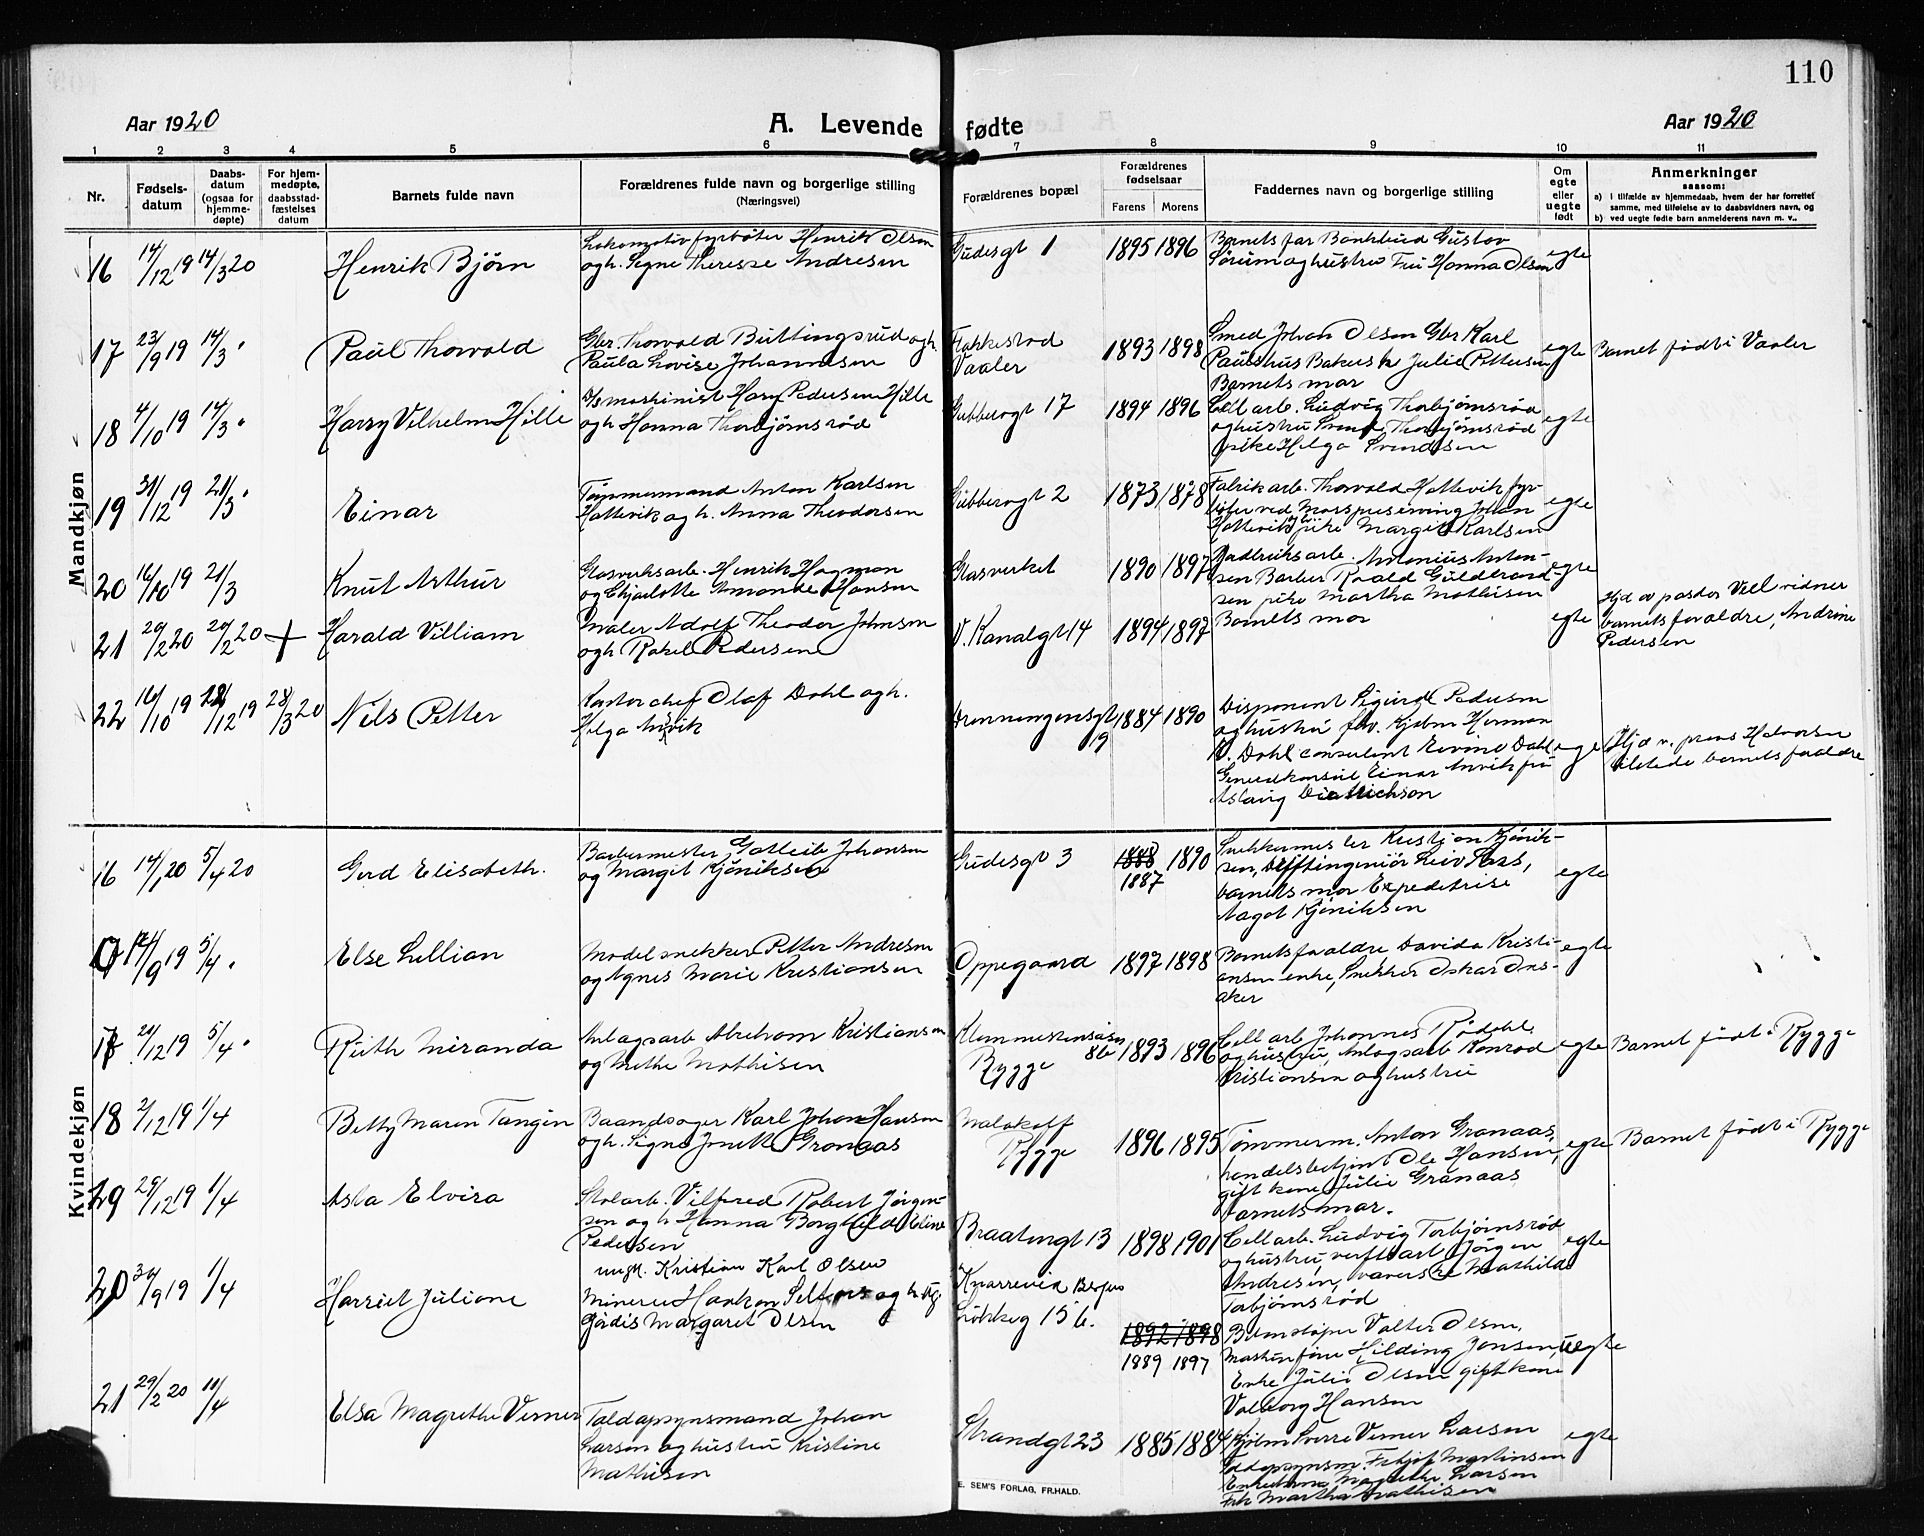 110
Aar 1920
A. Levende fødte
Aar 1920
1 2 3 4 5 6 7 8 9 10 11
Nr.
Fødsels-
datum
Daabs-
datum
(ogsaa for
hjemme-
døpte)
For hjem-
medøpte,
daabsstad-
fæstelses
datum
Barnets fulde navn
Forældrenes fulde navn og borgerlige stilling
(Næringsvei)
Forældrenes bopæl
Forældrenes
fødselsaar
Farens
Morens
Faddernes navn og borgerlige stilling
Om
egte
eller
uegte
født
Anmerkninger
saasom:
a) i tilfælde av hjemmedaab, hvem der har forrettet
samme, med tilføielse av to daabsvidners navn, og
b) ved uegte fødte barn anmelderens navn m. v..
Mandkjøn
16 14/12 19 14/3 20
Henrik Bjørn
Lokomotivfyrbøter Henrik Olsen
ogh. Signe Therese Andresen
Gudesgt 1
1895 1896
Barnets far Bankbud Gustav
Sørum og hustru Fru Hanna Olsen
egte
17 23/9 19 14/3 "
Paul Thorvald
Gbr. Thorvald Buttingsrud ogh.
Paula Lovise Johannesen
Vaaler
1893 1898
Smed Johan Olsen Gbr Karl
Paulshus Bakerske Julie Pettersen
Barnets mor
egte
Barnet født i Vaaler
18 4/10 19 14/3 "
Harry Vilhelm Hille
maskinist Harry Pedersen Hille
ogh Hanna Thorbjørnsrød
Gubberogt 17
1894 1896
Cell arb. Ludvig Thorbjørnsrød
og hustru Thorbjørnsrød
pike Helga Svendsen
egte
19 31/12 19 21/3 "
Einar
Tømmermand Anton Karlsen
Hattevik og h. Anna Theodorsen
Gubberogt 2
1873 1878
Fabrikarb. Thorvald Hattevik fyr-
bøter ved Johan
Hattevik pike Margit Karlsen
egte
20 16/10 19 21/3
Knut Arthur
Glasverksarb. Henrik Hagman
og Charlotte Amanda Hansen
Glasverket
1890 1897
Antonius Anton-
sen Barber Roald Guldbrand-
sen pike Martha Mathisen
egte
21 20/2 20 20/2 20 +
Harald Villiam
Maler Adolf Theodor Johnsen
ogh Rakel Pedersen
V. Kanalgt 14
1894 1897
Barnets mor
egte
Hjd av pastor vidner
barnets forældre, Andrine
Pedersen
22 16/10 19 28/12 19 28/3 20
Nils Petter
Kontorchef Olaf Dahl ogh.
Helga Anvik
Dronningensgt
19
1884 1890
Disponent Sigurd Pedersen
og hustru Kjøbm Herman
D. Dahl consulent Eivind Dahl
Generalkonsul Einar Anvik fru
Aslaug Diedrichson
egte
Hjd v. prest Halvorsen
tilstede barnets forældre
Kvindekjøn
16 14/1 20 5/4 20
Gerd Elisabeth.
Barbermester Gotleib Johansen
og Margit Kjøniksen
Gudesgt 3
1888 1890
1887
Snekkermester Kristjan Kjønik-
sen, Driftingeniør Leiv
barnets mor Expeditrise
Aagot Kjøniksen
egte
9 19 5/4 "
Else Lillian
Modelsnekker Petter Andresen
og Agnes Marie Kristiansen
Oppegaard
1897 1898
Barnets forældre Davida Kristi-
ansen enke, Snekker Oskar Ons-
aker
egte
17 21/12 19 5/4 "
Ruth Miranda
Anlagsarb Abraham Kristiansen
og Methe Mathisen
Rygge
1893 1896
Cell arb Johannes Rødahl
og hustru, Anlagsarb Konrad
Kristiansen og hustru
egte
Barnet født i Rygge
18 2/12 19 1/4
Betty Maren Tangen
Baandsager Karl Johan Hansen
ogh. Signe Janette Grønaas
Malakoff
Rygge
1896 1895
Tømmerm. Anton Granaas,
handelsbetjent Ole Hansen,
gift kone Julie Granaas
barnets mor.
egte
Barnet født i Rygge
19 29/12 19 1/4
Asta Elvira
Stolarb. Vilfred Robert Jørgen-
sen og h Hanna Borghild Eline
Pedersen
Braatengt 13
1898 1901
Cell arb. Ludvig Torbjørnsrød
og hustru, verftsarb Jørgen
Andresen, Mathilde
Torbjørnsrød
egte
20 9 19 1/4
Harriet Juliane
ungk. Kristian Karl Olsen
Minerer Haakon
Hjørdis Margaret Olsen
15 b.
1892 1898
1889 1897
Valter Olsen,
Hilding Jonsen,
Enke Julie Olsen gift kone
Valborg Hansen
uegte
21 29/2 20 10/4
Elsa Magrethe Verner
Toldopsynsmand Johan
Larsen og hustru Kristine
Mathisen
Strandgt 23
1885 1884
Kjøbm Sverre Verner Larsen
Toldopsynsm. Fritjof Martinsen
Enkefru Magrethe Larsen
Frk Martha Mathisen
egte
E. SEM'S FORLAG, FR.HALD.